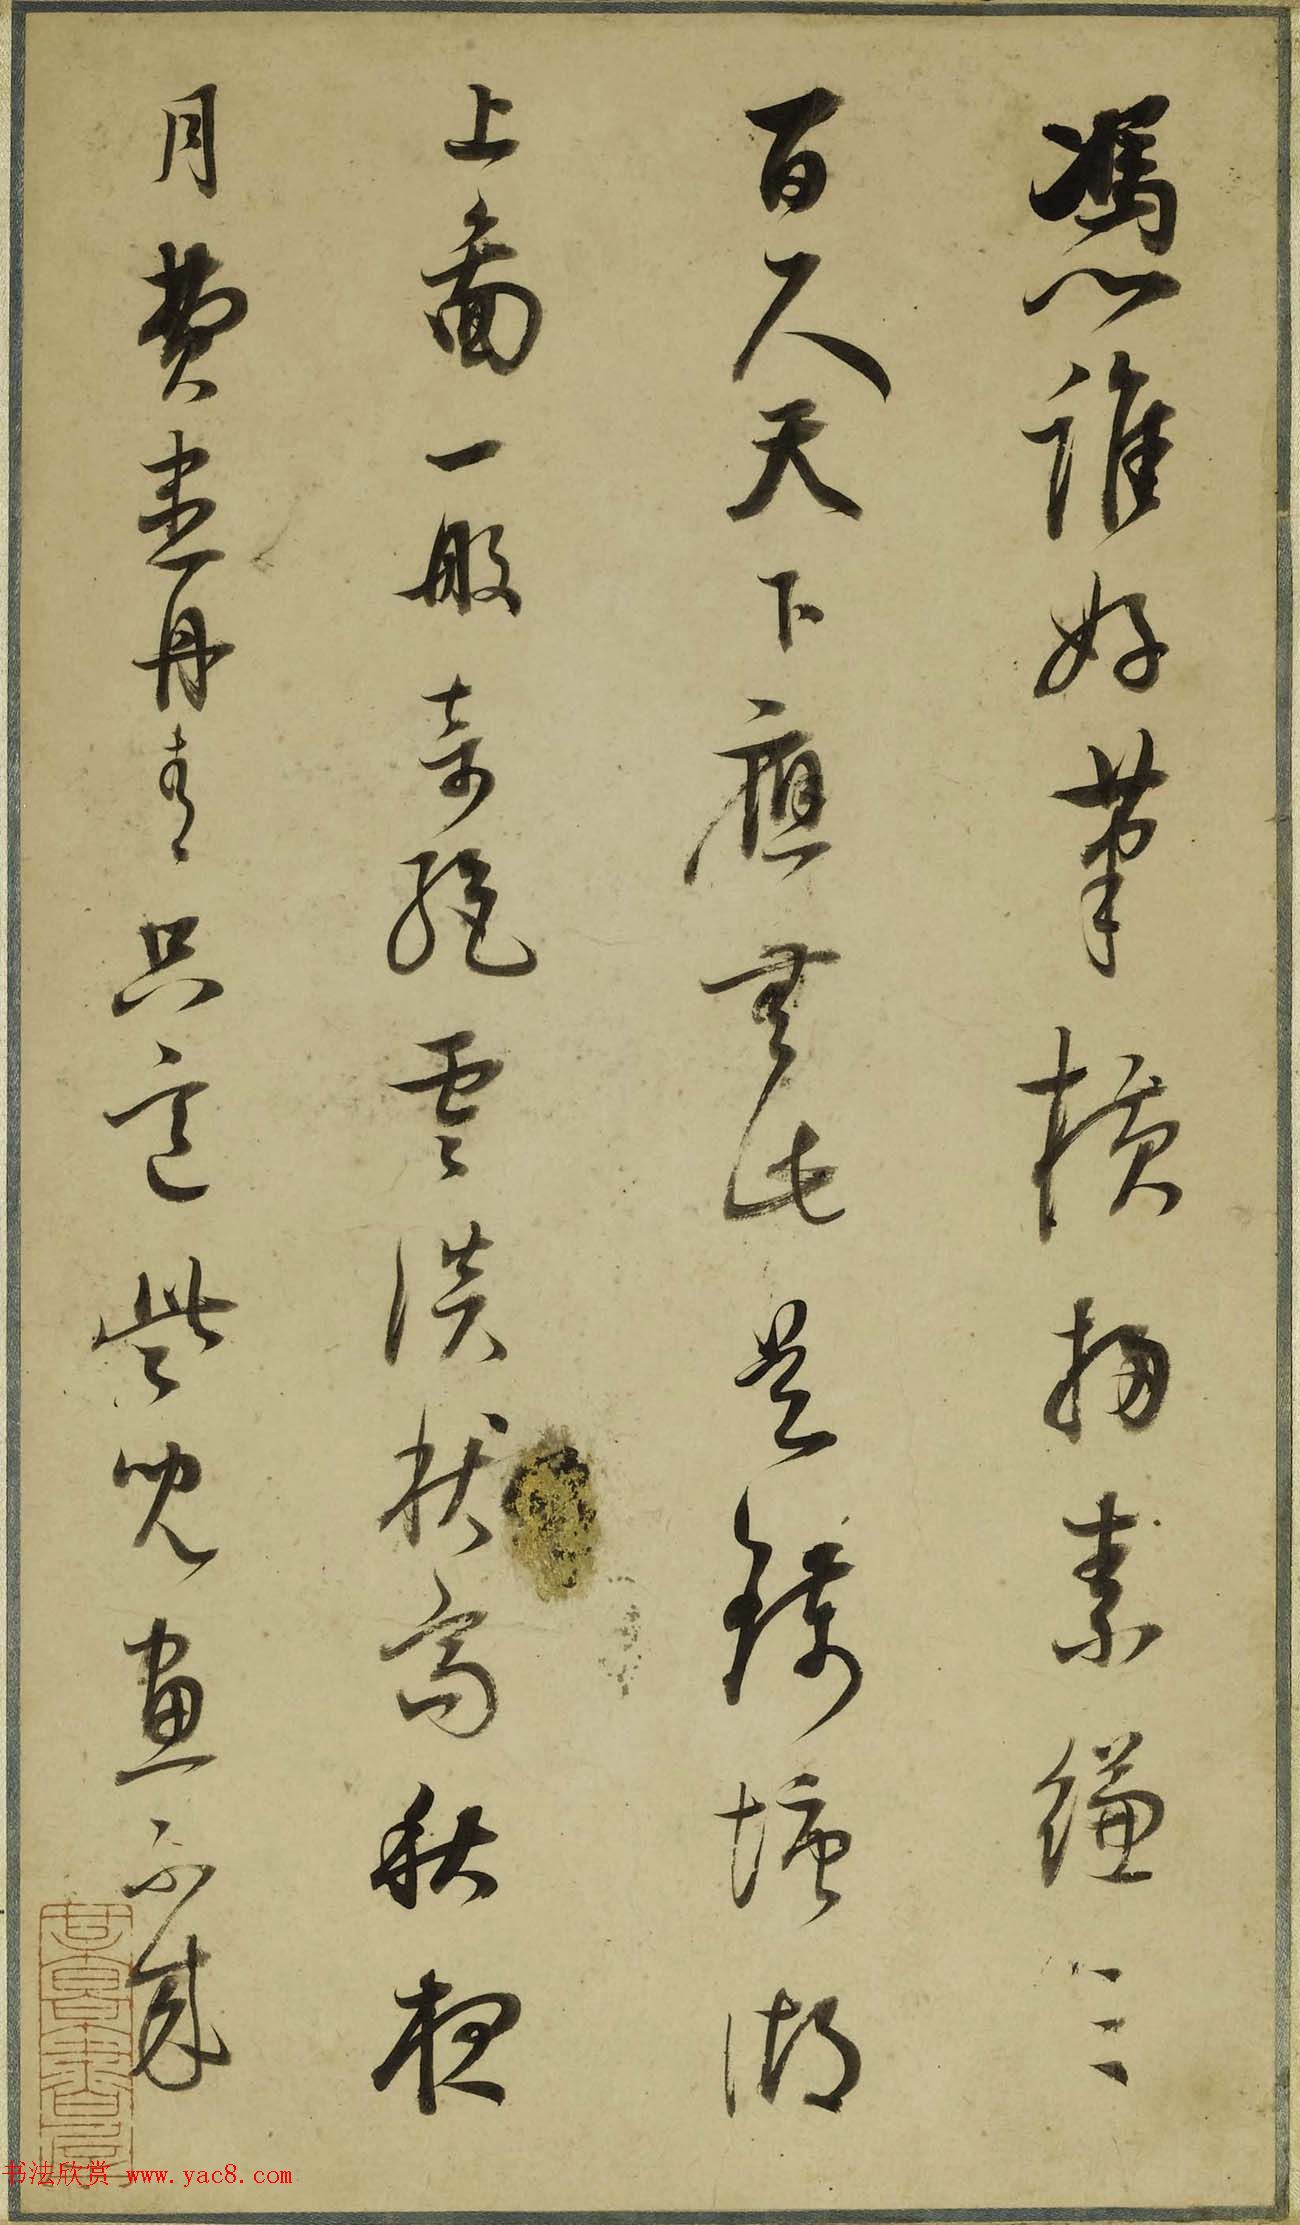 憑誰好筆橫掃素縑三
百尺天下應無此是錢塘湖
上圖一般奇絕雲淡狀高秋夜
月費盡丹青只這些兒畫不成
书法欣赏 www.yac8.com